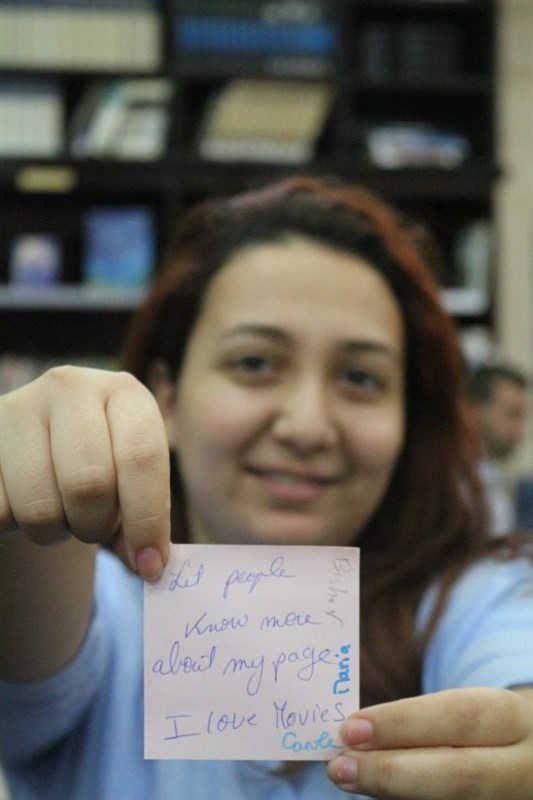 Let people
know more
about my page.
I love Movies
Carole
Maria